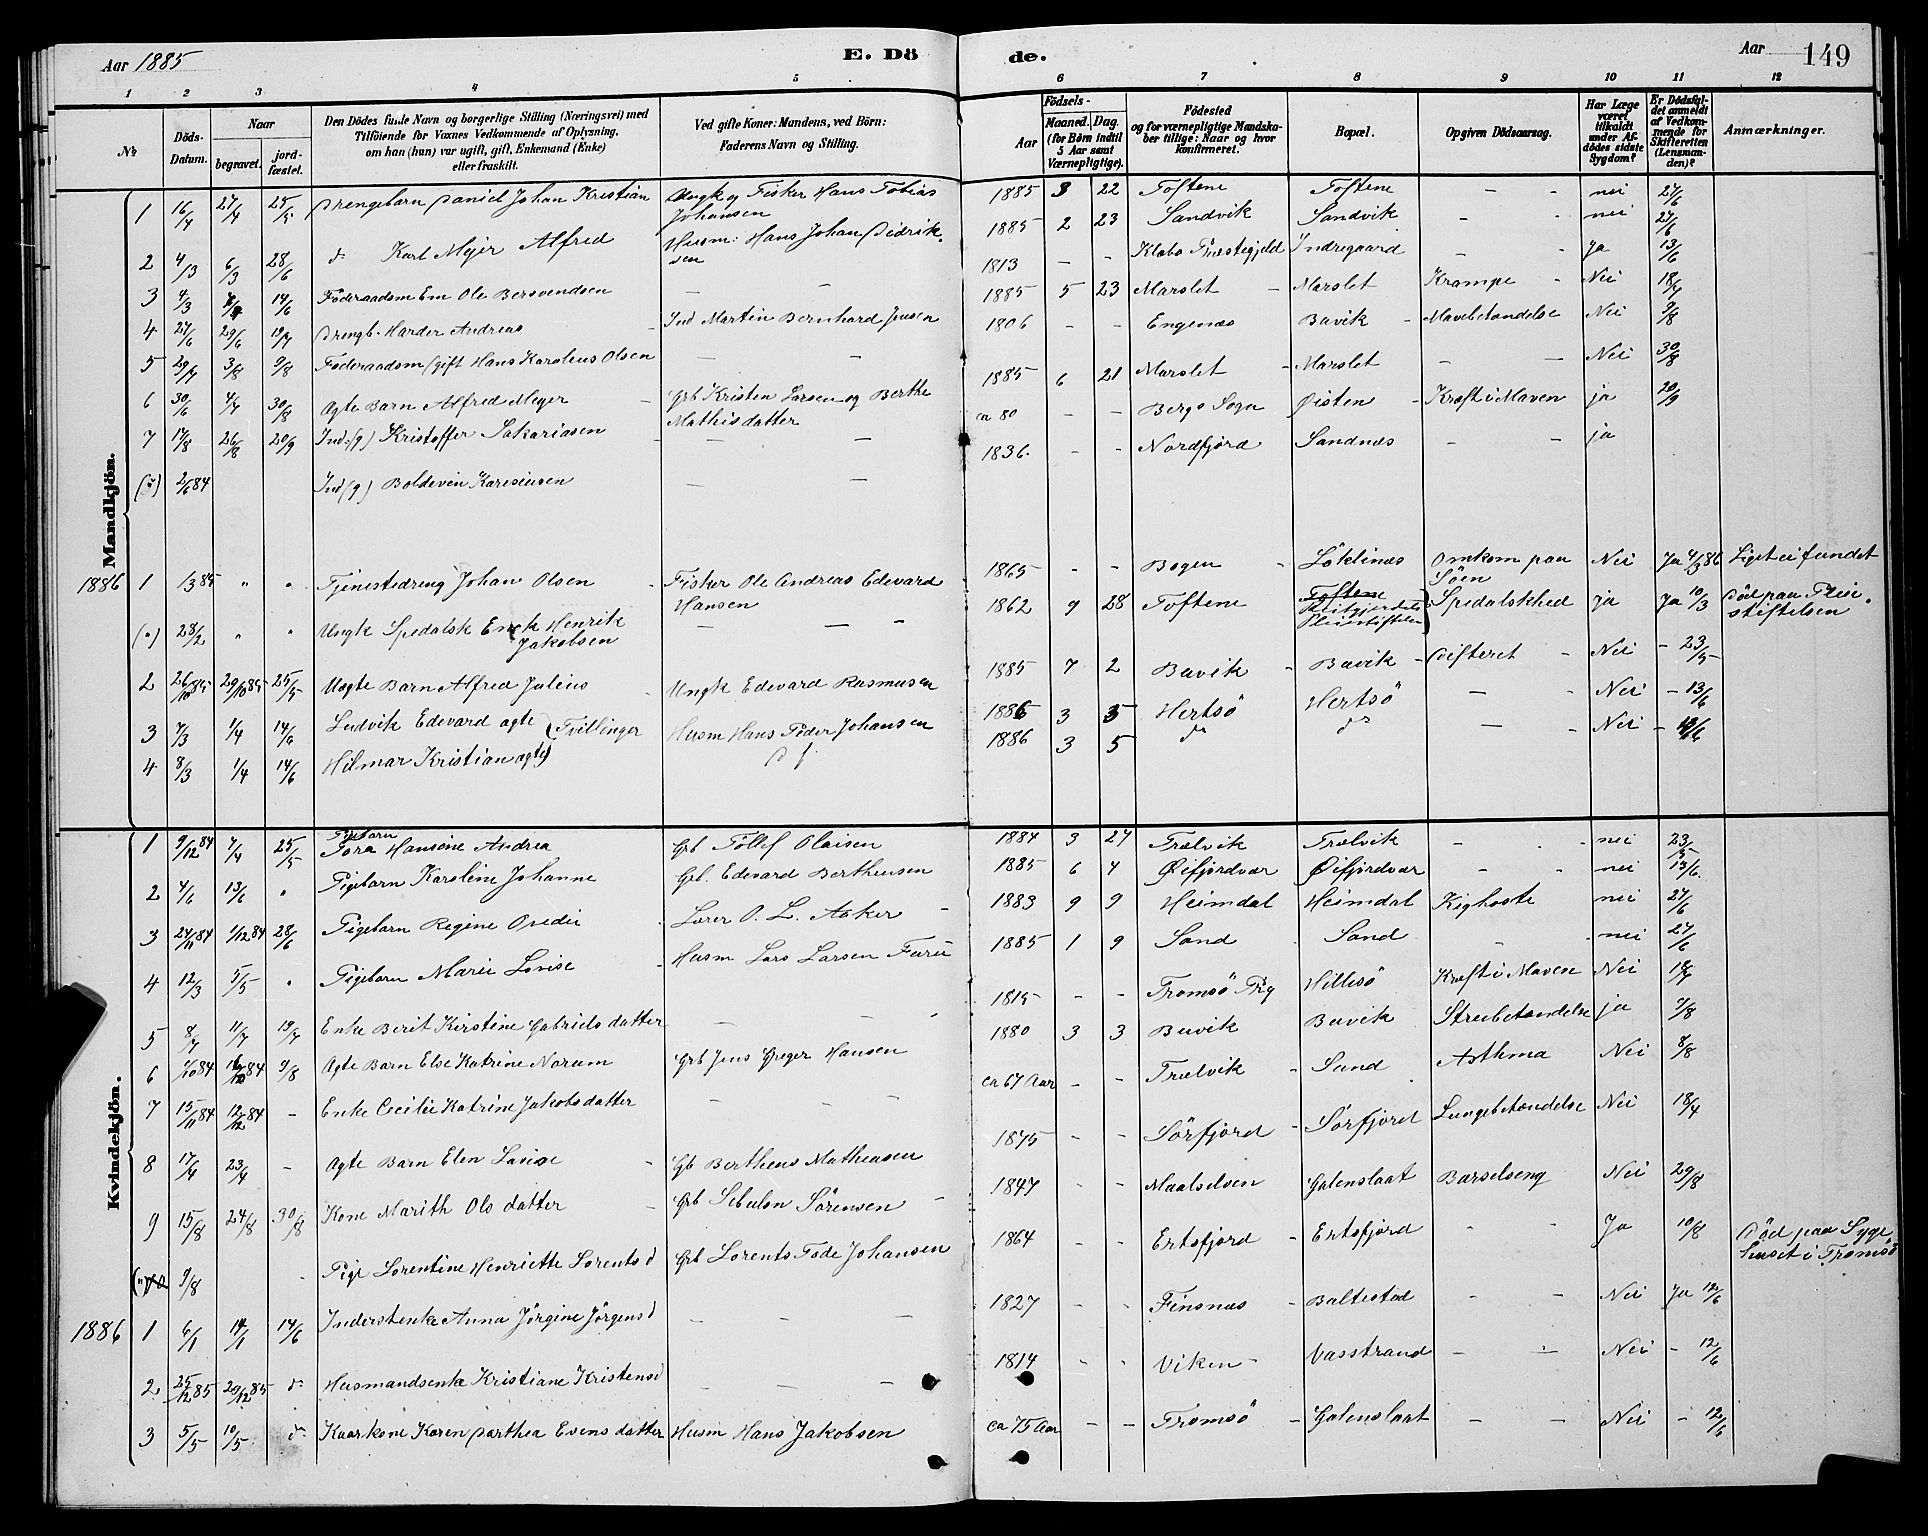 Aar 1885
E. Dö
de.
Aar
149
1 2 3 4 5 6 7 8 9 10 11 12
No.
Döds-Datum.
Naar
begravet.
jord-fæstet.
Den Dödes fulde Navn og borgerlige Stilling (Næringsvei) med
Tilföiende for Voxnes Vedkommende af Oplysning,
om han (hun) var ugift, gift, Enkemand (Enke)
eller fraskilt.
Ved gifte Koner: Mandens, ved Börn:
Faderens Navn og Stilling.
Födsels-
Aar
Maaned. Dag.
(for Börn indtil
5 Aar samt
Værnepligtige).
Födested
og for værnepligtige Mandska-
ber tillige: Naar og hvor
konfirmeret.
Bopæl.
Opgiven Dödsaarsag.
Har Læge
været
tilkaldt
under Af-
dödes sidste
Sygdom?
Er Dödsfal-
det anmeldt
af Vedkom-
mende for
Skifteretten
(Lensman-
den)?
Anmærkninger.
Mandkjön.
1 16/4 27/4 25/5 Drengebarn Daniel Johan Kristian Ungk og Fisker Hans Tobias Johansen 1885 3 22 Toftene Toftene - - nei 27/6
2 4/3 6/3 28/6 do Karl Mejer Alfred Husm: Hans Johan Didriksen 1885 2 23 Sandvik Sandvik - - nei 27/6
3 4/3 14/6 Föderaadsm Em Ole Bersvendsen - - 1813 - - Klæbo Præstegjeld Indregaard - - Ja 13/6
4 27/6 29/6 19/7 Drengb. Harder Andreas Ind Martin Bernhard Jensen 1885 5 23 Marslet Marslet Krampe - Nei 18/7
5 29/7 3/8 9/8 Föderaadsm (gift Hans Karolius Olsen - - 1806 - - Engenæs Bavik - Mavebetændelse Nei 9/8
6 30/6 4/7 30/8 Ægte Barn Alfred Meyer - Grb Kristen Larsen og Berthe Mathisdatter 1885 6 21 Marslet - Marslet - - Nei 30/8
7 17/8 26/8 20/9 Ind. (g) Kristoffer Sakariasen - - - ca 80 - - Bergs Sogn Öisten - Kræft i Maven ja 20/9
(") 2/6 84 Ind (g) Boldevin Karesiusen - - 1836. - - Nordfjord Sandnæs - - ja
1886 1 1385 " " Tjenestedreng Johan Olsen - Fisker Ole Andreas Edevard Hansen 1865 - - Bogen - Löklinæs Omkom paa Söen Nei Ja 4/3 86 Liget ei fundet
(") 28/2 " " Ungk Spedalsk Erik Henrik Jakobsen - - - 1862 9 28 Toftene Toftene Reitgjerdets Pleiestiftelse Spedalskhed ja Ja 10/3 Död paa Pleiestiftelsen
2 26/10 85 29/10 85 25/5 Uægte Barn Alfred Julius - Ungk Edevard Rasmusen 1885 7 2 Bavik - Bavik - Difteret - Nei - 23/5
3 7/3 1/4 14/6 Ludvik Edevard ægte (Tvillinger Husm Hans Peder Johansen 1886 3 5 Hertsö Hertsö - - Nei - 13/6
4 8/3 1/4 14/6 Hilmar Kristian ægte) 1886 3 5 do do - - Nei - 13/6
Kvindekjön.
1 9/12 84 7/4 25/5 Pigebarn Tora Hansine Andrea Grb Töllef Olaisen 1884 3 27 Trælvik Trælvik - - nei 23/5
2 4/6 13/6 " Pigebarn Karoline Johanne Grb. Edevard Bertheusen 1885 6 4 Öifjordvær Öifjordvær - - nei 13/6
3 24/11 84 1/12 84 28/6 Pigebarn Regine Ovedie - Lærer O. L. Aaker - 1883 9 9 Heimdal Heimdal Kighoste nei 27/6
4 12/3 5/5 " Pigebarn Marie Lovise - Husm Lars Larsen Furü 1885 1 9 Sand - Sand - - nei 27/6
5 8/7 11/7 19/7 Enke Berit Kirstine Gabrielsdatter - - 1815 - - Tromsö Prg Hillesö Kræft i Maven Nei 18/7
6 1/10 84 12 84 9/8 Ægte Barn Else Katrine Norum Grb Jens Greger Hansen 1880 3 3 Buvik Buvik Strubebetændelse ja 9/8
7 15/11 84 12/12 84 - Enke Cecilie Katrine Jakobsdatter - - ca 67 Aar - - Trælvik - Sand Asthma Nei 8/8
8 17/4 23/4 - Ægte Barn Elen Lovise - Gb Bertheus Matheusen 1845 - - Sörfjord - Sörfjord Lungebetændelse Nei 18/4
9 15/8 24/8 30/8 Kone Marith Olsdatter - Grb Sebulon Sörensen - 1847 - - Maalselven Galenslaat Barselseng Nei 29/8
(") 9/8 Pige Lorentine Henriette Lorentsd Grb Lorents Pede Johansen 1864 - - Ertsfjord - Ertsfjord - - Ja 10/8 Död paa Sygehuset i Tromsö
1886 1 6/1 14/1 14/6 Inderstenke Anna Jörgine Jörgensd - - - 1827 - - Finsnæs - Baltestad - - Nei Ja 12/6
2. 25/12 85 29/12 85 do Husmandsenke Kristiane Kristensd - - - 1814 - - Viken - Vasstrand - - Nei - 12/6
3 5/5 10/5 do Kaarkone Karen Dorthea Evensdatter Husm Hans Jakobsen ca 75 Aar - - Tromsö - Galenslaat - - Nei - 12/6